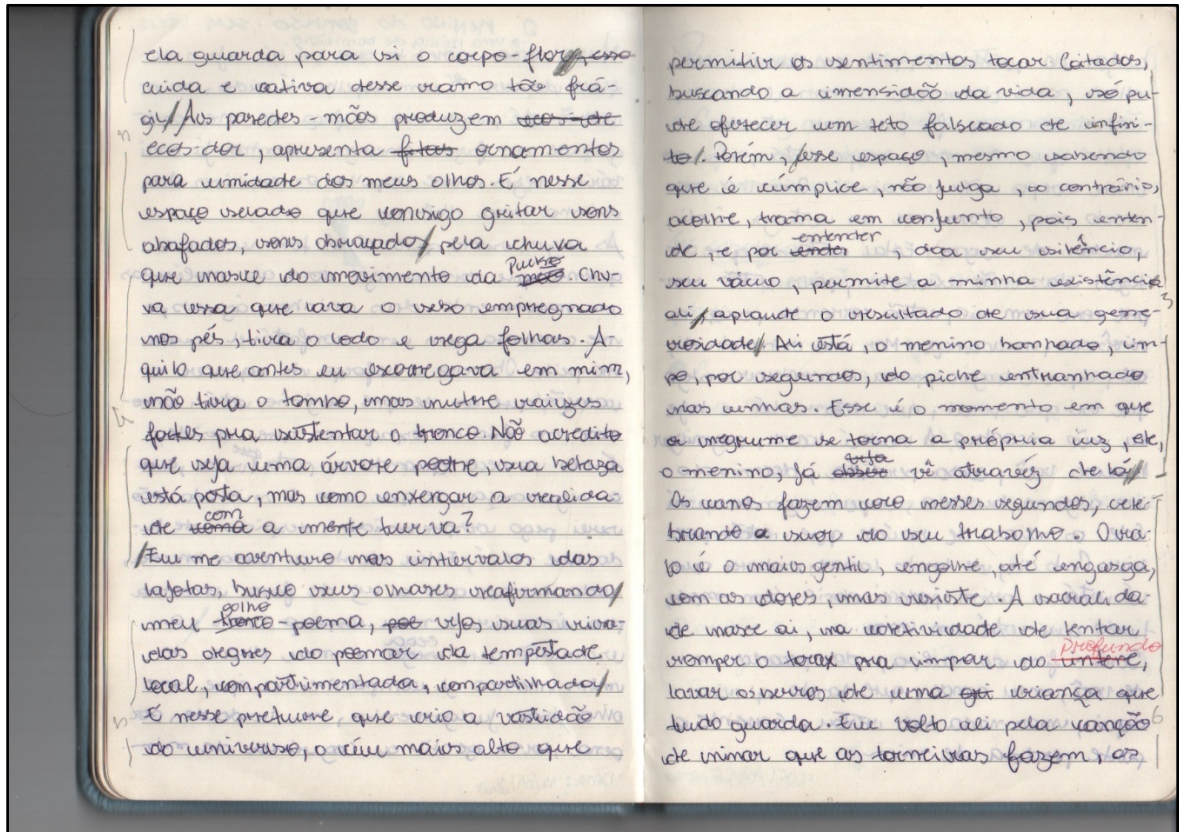 ela guarda para si o corpo-flor, esse
cuida e cativa desse ramo tão frá-
gil/ As paredes-mãos produzem ecos-de
ecos-dor, apresenta fitas ornamentos
para umidade dos meus olhos. É nesse
espaço selado que consigo gritar sons
abafados, sons abraçados/ pela chuva
Pulso
que nasce do movimento da mão. Chu-
va essa que lava o sebo empregnado
nos pés, tira o lodo e rega folhas. A-
quilo que antes eu escorregava em mim,
não tira o tombo, mas nutre raízes
fortes pra sustentar o tronco. Não acredito
que seja uma árvore podre, sua beleza
está posta, mas como enxergar a realida
com
de coma a mente turva?
/Eu me aventuro nos intervalos das
lajotas, busco seus olhares reafirmando/
galho
meu tronco poema, poe vejos suas risa-
das alegres do poemar da tempestade
local, compartimentada, compartilhada/
É nesse pretume, que crio a vastidão
do universo, o céu mais alto que
permitir os sentimentos tocar. Catados,
buscando a imensidão da vida, só pu-
de oferecer um teto falseado de infini-
to/. Porém, esse espaço, mesmo sabendo
que é cúmplice, não julga, ao contrário,
acolhe, trama em conjunto, pois enten-
entender
de, e por ender, doa seu silêncio,
seu vácuo, permite a minha existência
3
ali/ aplaude o resultado de sua gene-
rosidade/ Ali está, o menino banhado, lim-
po, por segundos, do piche entranhado
nas unhas. Esse é o momento em que
o negrume se torna a própria luz, ele,
o menino, já vê através de lá/
Os canos fazem coro nesses segundos, cele-
brando o suor do seu trabalho. O ra-
lo é o mais gentil, engolhe, até engasga,
com as dores, mas resiste. A sacralida-
de nasce ai, na coletividade de tentar
profundo
romper o torax pra limpar do intere,
lavar os berros de uma criança que
tudo guarda. Eu volto ali pela canção
6
de ninar que as torneiras fazem, as